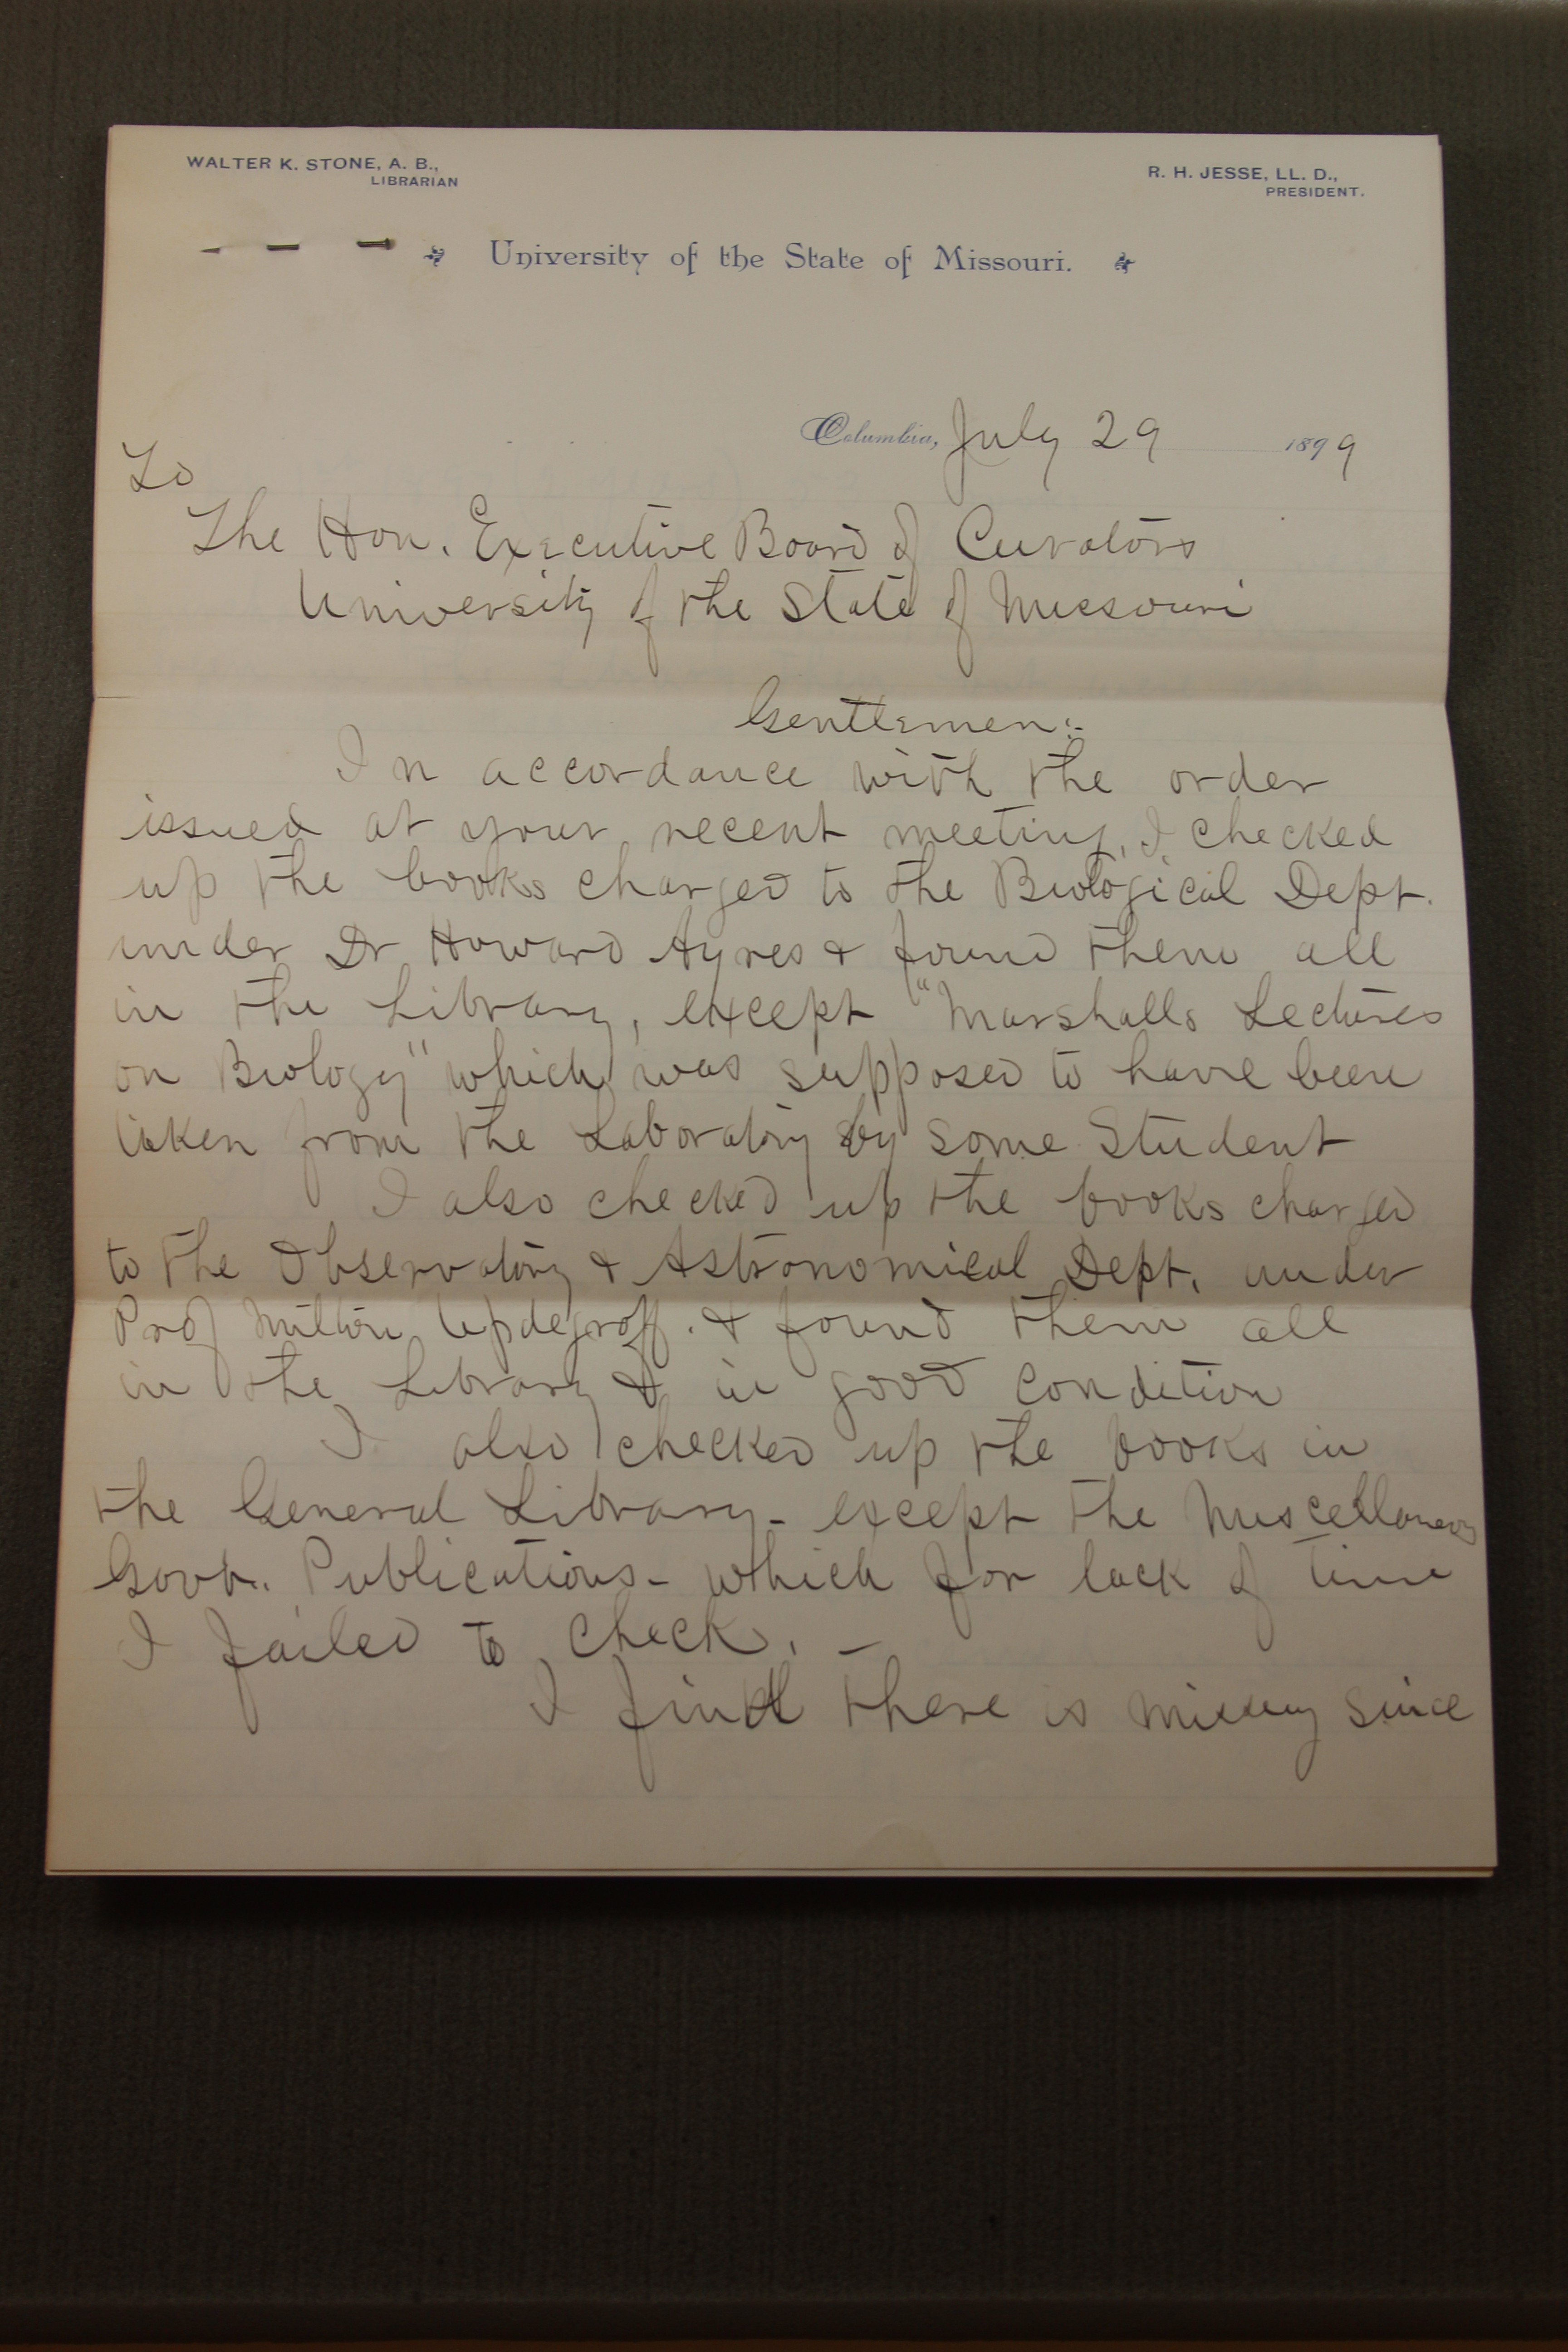 WALTER K. STONE, A. B.,
LIBRARIAN
R. H. JESSE, LL. D.,
PRESIDENT.
University of the State of Missouri.
Columbia, July 29 1899
To
The Hon. Executive Board of Curators
University of the State of Missouri
Gentlemen:-
In accordance with the order
issued at your recent meeting, I checked
up the books charged to the Biological Dept.
under Dr Howard Ayres & found them all
in the Library, except "Marshalls Lectures
on Biology" which was supposed to have been
taken from the Laboratory by some Student
I also checked up the books charged
to the Observatory & Astronomical Dept. under
Prof Milton Updegraff. & found them all
in the Library & in good condition
I also checked up the books in
the General Library - except the Miscellaneous
Govt. Publications - which for lack of time
I failed to check. -
I find there is missing since